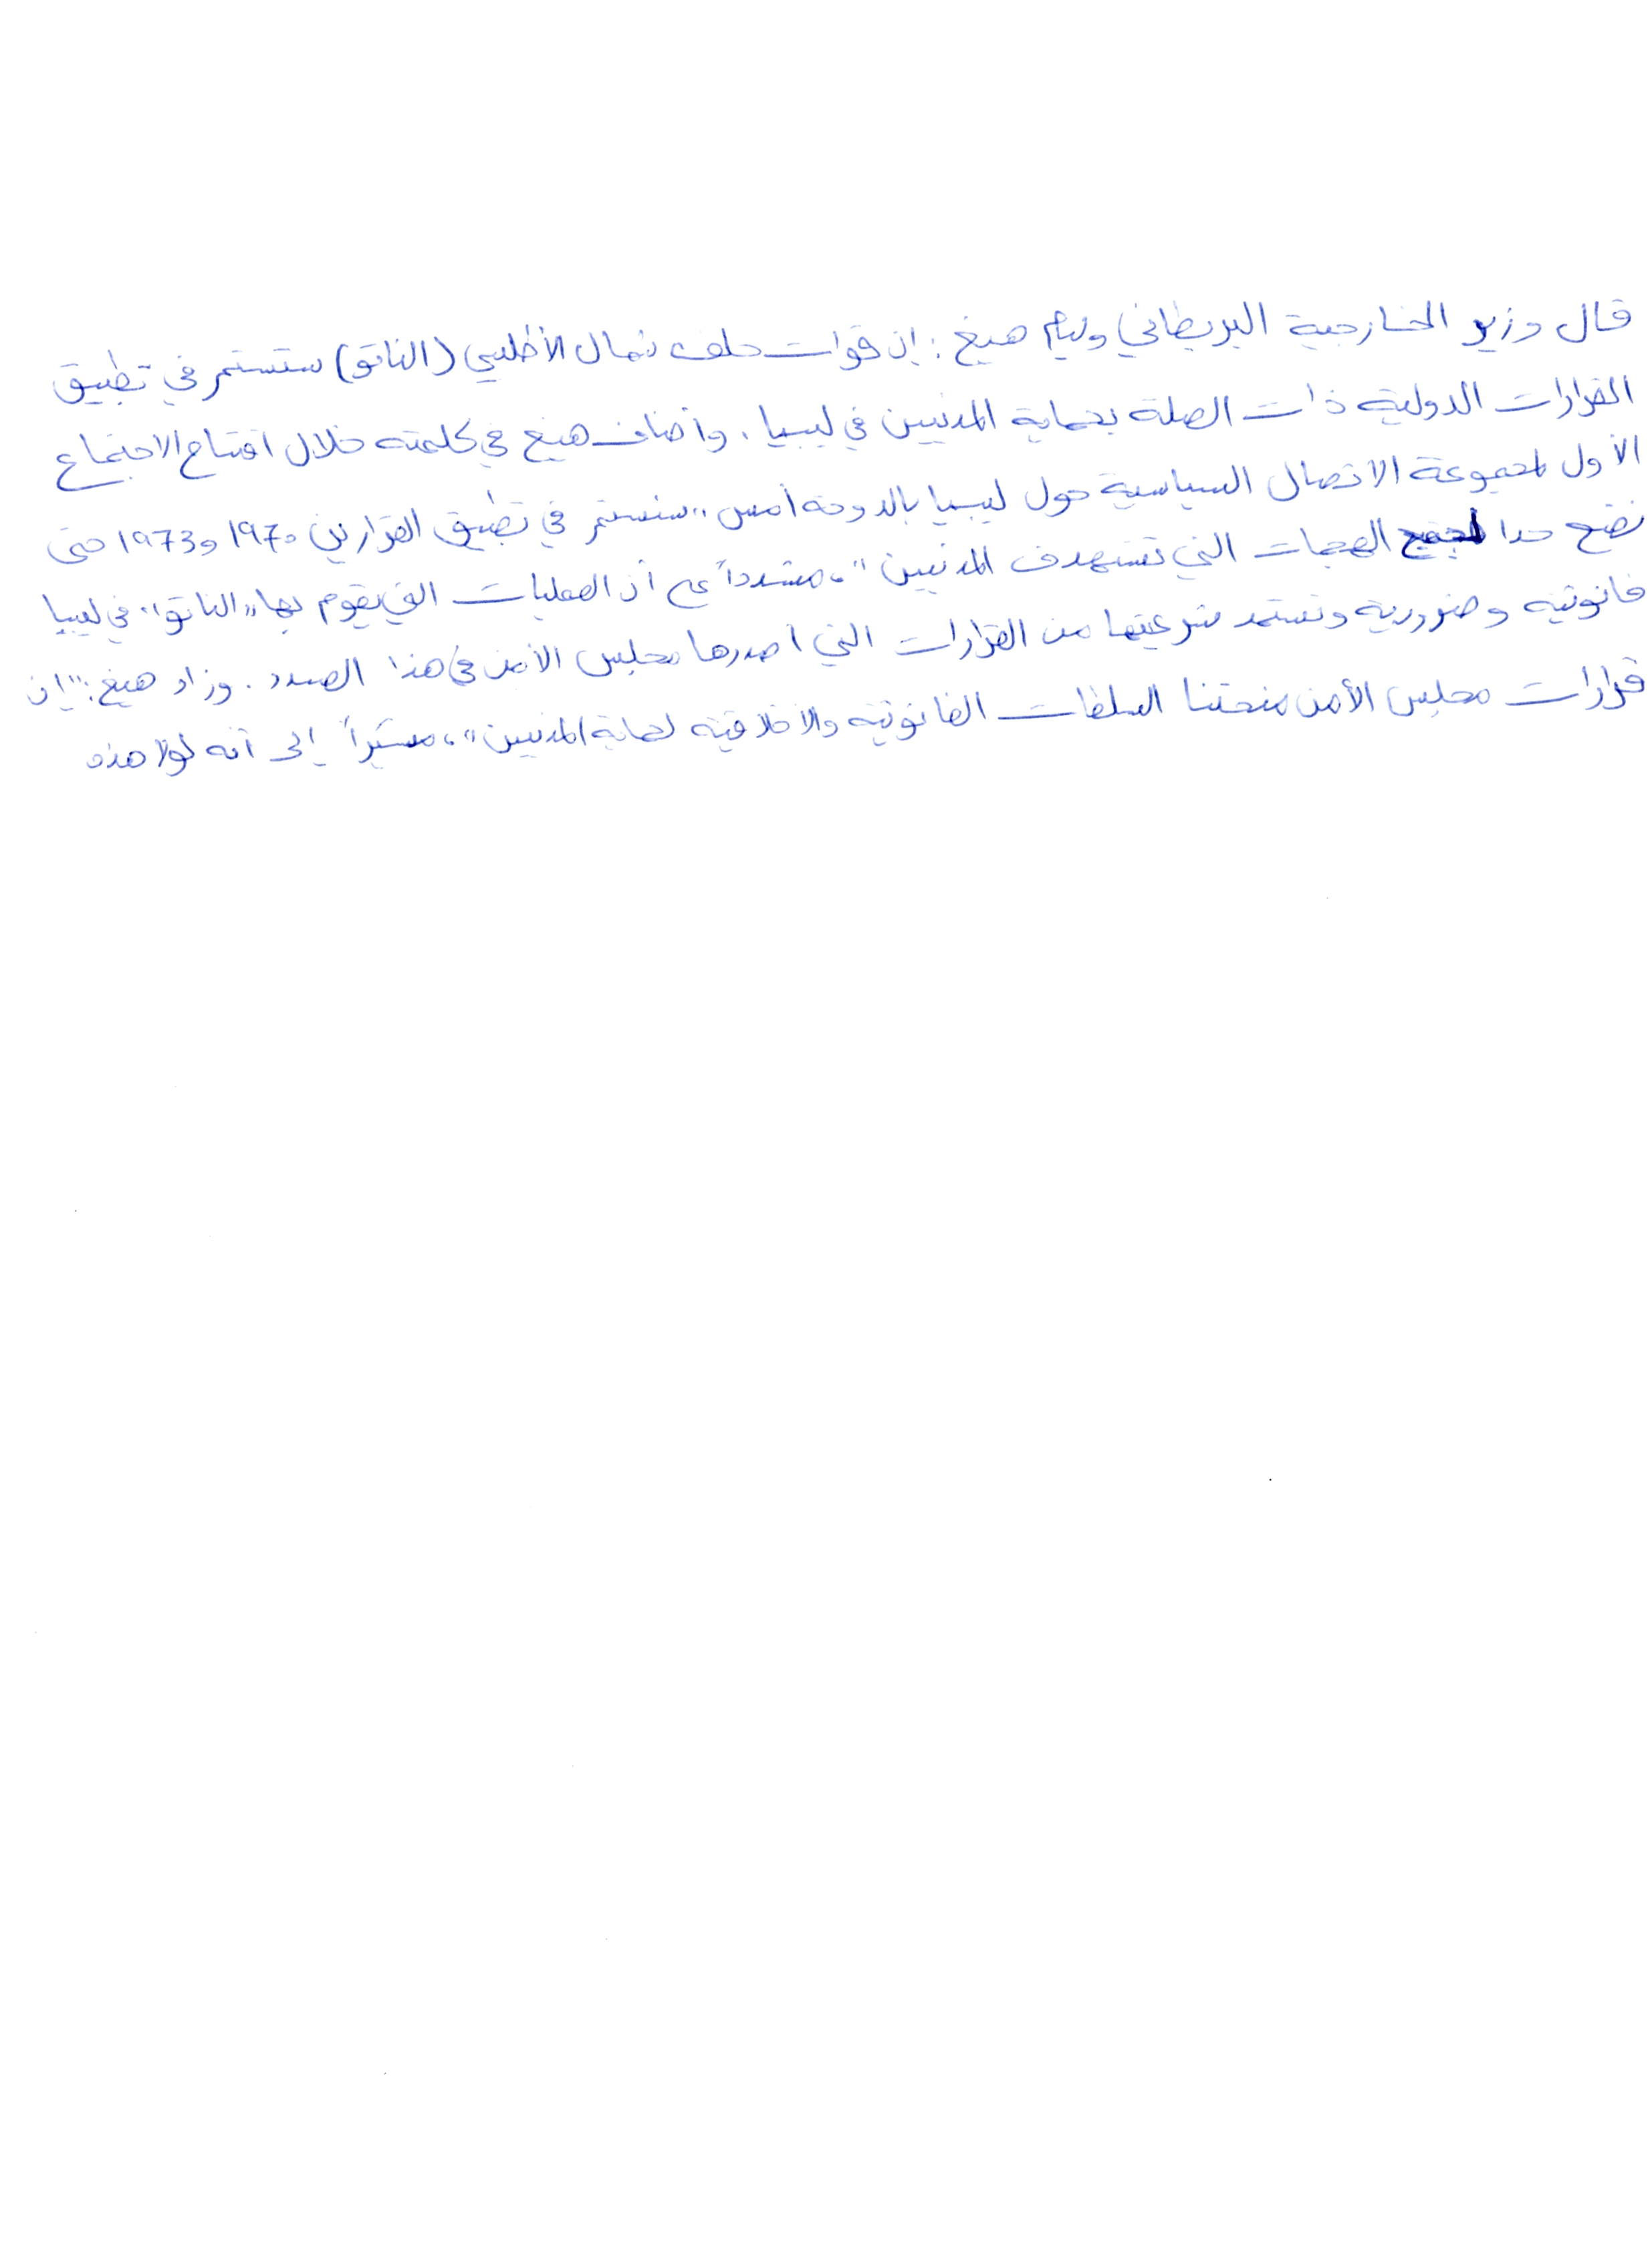 قال وزير الخارجية البريطاني وليام هيغ : إن قوات حلف شمال الأطلسي (الناتو) ستستمر في تطبيق
القرارات الدولية ذات الصلة بحماية المدنيين في ليبيا . وأضاف هيغ في كلمته خلال افتتاح الاجتماع
الأول لمجموعة الاتصال السياسية حول ليبيا بالدوحة أمس "سنستمر في تطبيق القرارين 1970 و1973 حتى
نضع حدا لجميع الهجمات التي تستهدف المدنيين"، مشدداً على أن العمليات التي يقوم بها "الناتو" في ليبيا
قانونية وضرورية وتستمد شرعيتها من القرارات التي أصدرها مجلس الأمن في هذا الصدد . وزاد هيغ: "إن
قرارات مجلس الأمن منحتنا السلطات القانونية والأخلاقية لحماية المدنيين"، مشيراً إلى أنه لولا هذه